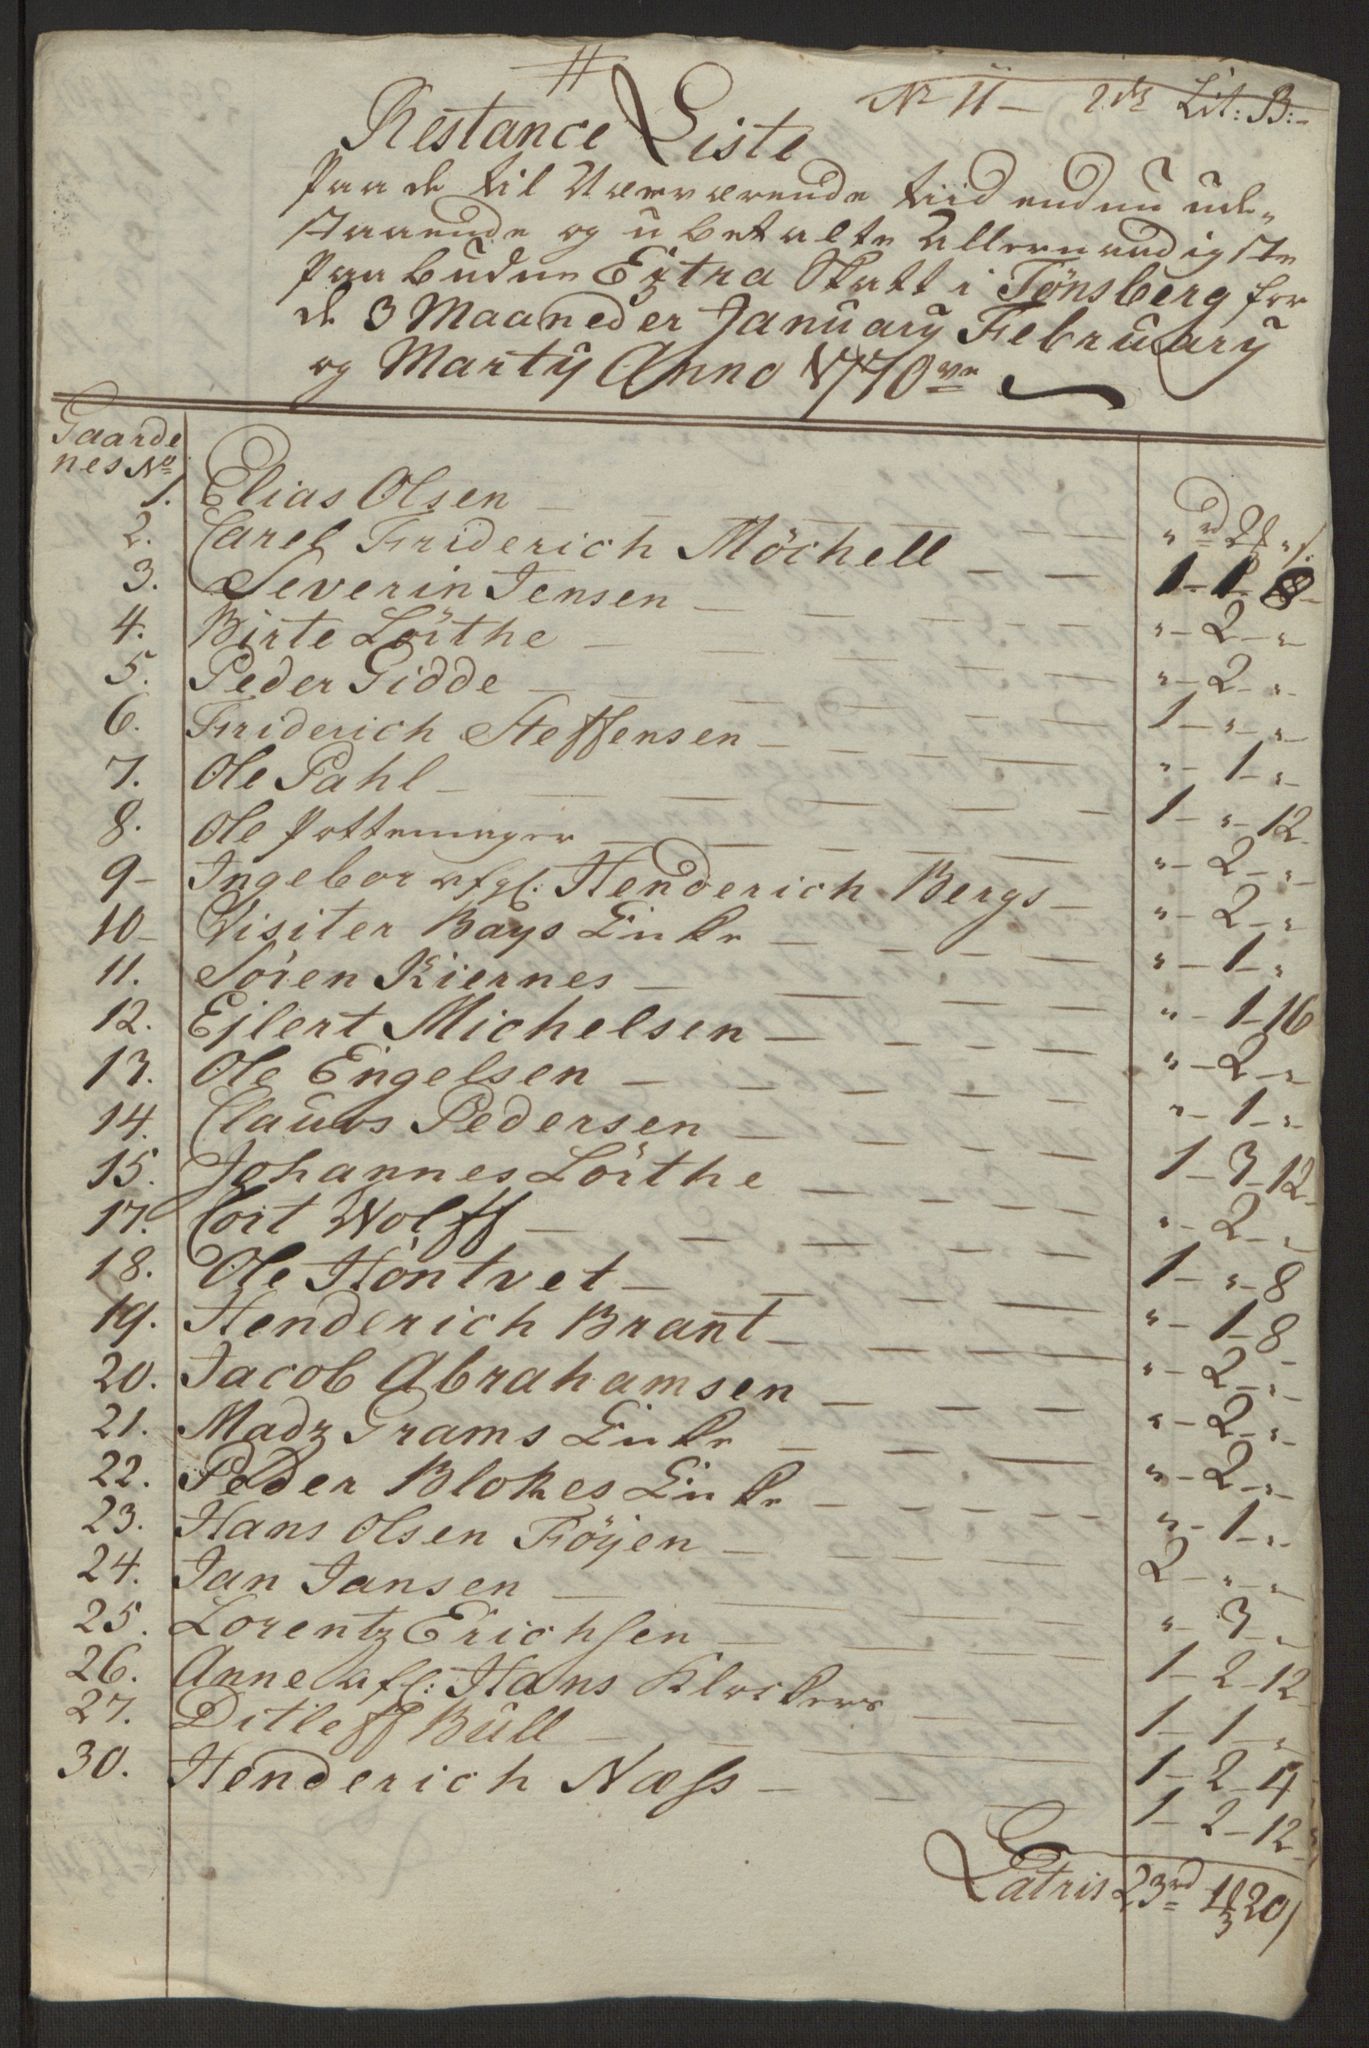 No 11 – 2de Lit: B:
Restance Liste
Paa de til Nærværende tiid endnu ude-
staaende og ubetalte Allernaadigste
Paabudne Extra Skatt i Tönsberg for
de 3 Maaneder January February
og Martij Anno 1770ve
Gaarde
nes No
1. Elias Olsen — " rd 2 " s.
2. Carel Friderich Möchell — 1 – 1 – 8
3. Severin Jensen — " – 2 – "
4. Birte Lörthe — " – 2 – "
5. Peder Gidde — 1 – " – "
6. Friderich Steffensen — " – 1 – "
7. Ole Pahl — 1 – " – 12
8. Ole Pottemager — " – 2 – "
9 – Ingebor afgl: Henderich Bergs — " – 2 – "
10 – Visiter Bays Enke — " – 1 – "
11. Sören Kiernes — " – 1 – 16
12. Ejlert Michelsen — " – 2 – "
13. Ole Engelsen — " – 1 – "
14. Clauos Pedersen — 1 – 3 – 12
15. Johannes Lörthe — " – 2 – "
17. Cort Wolff — 1 – " – 8
18. Ole Höntvet — " – 1 – 8
19. Henderich Brant — " – 2 – "
20. Jacob Abrahamsen — " – 2 – "
21. Madz Grams Enke — " – 2 – "
22. Peder Blokes Enke — " – 1 – "
23. Hans Olsen Föyen — 2 – " – "
24. Jan Jansen — " – 3 – "
25. Lorentz Erichsen — 1 – 2 – 12
26. Anne afl: Hans Klockers — 1 – 1 – "
27. Ditleff Bull — 1 – 2 – 4
30. Henderich Næss — 1 – 2 – 12
Latris 23 rd 1 20 s